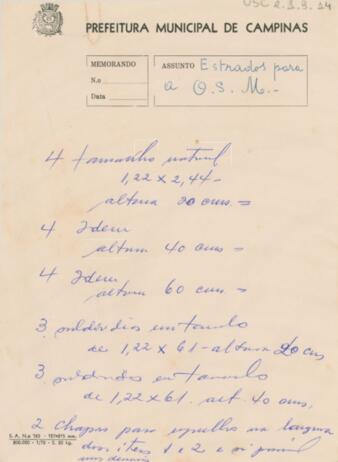 USC 2.1.9.14
PREFEITURA MUNICIPAL DE CAMPINAS
MEMORANDO
N.o
Data
ASSUNTO Estrados para
a O. S. M.-
4 tamanho natural
1,22 x 2,44 -
altura 20 cms =
4 Idem
altura 40 cms =
4 Idem
altura 60 cms =
3 em tamanho
de 1,22 x 61 - altura 20 cms
3 em tamanho
de 1,22 x 61. alt. 40 cms,
2 chapas para espelhos na largura
dos ítens 1 e 2 e
nos demais
S. A. N.o 163 - 157x215 mm.
800.000 - 1/70 - S. 50 kg.